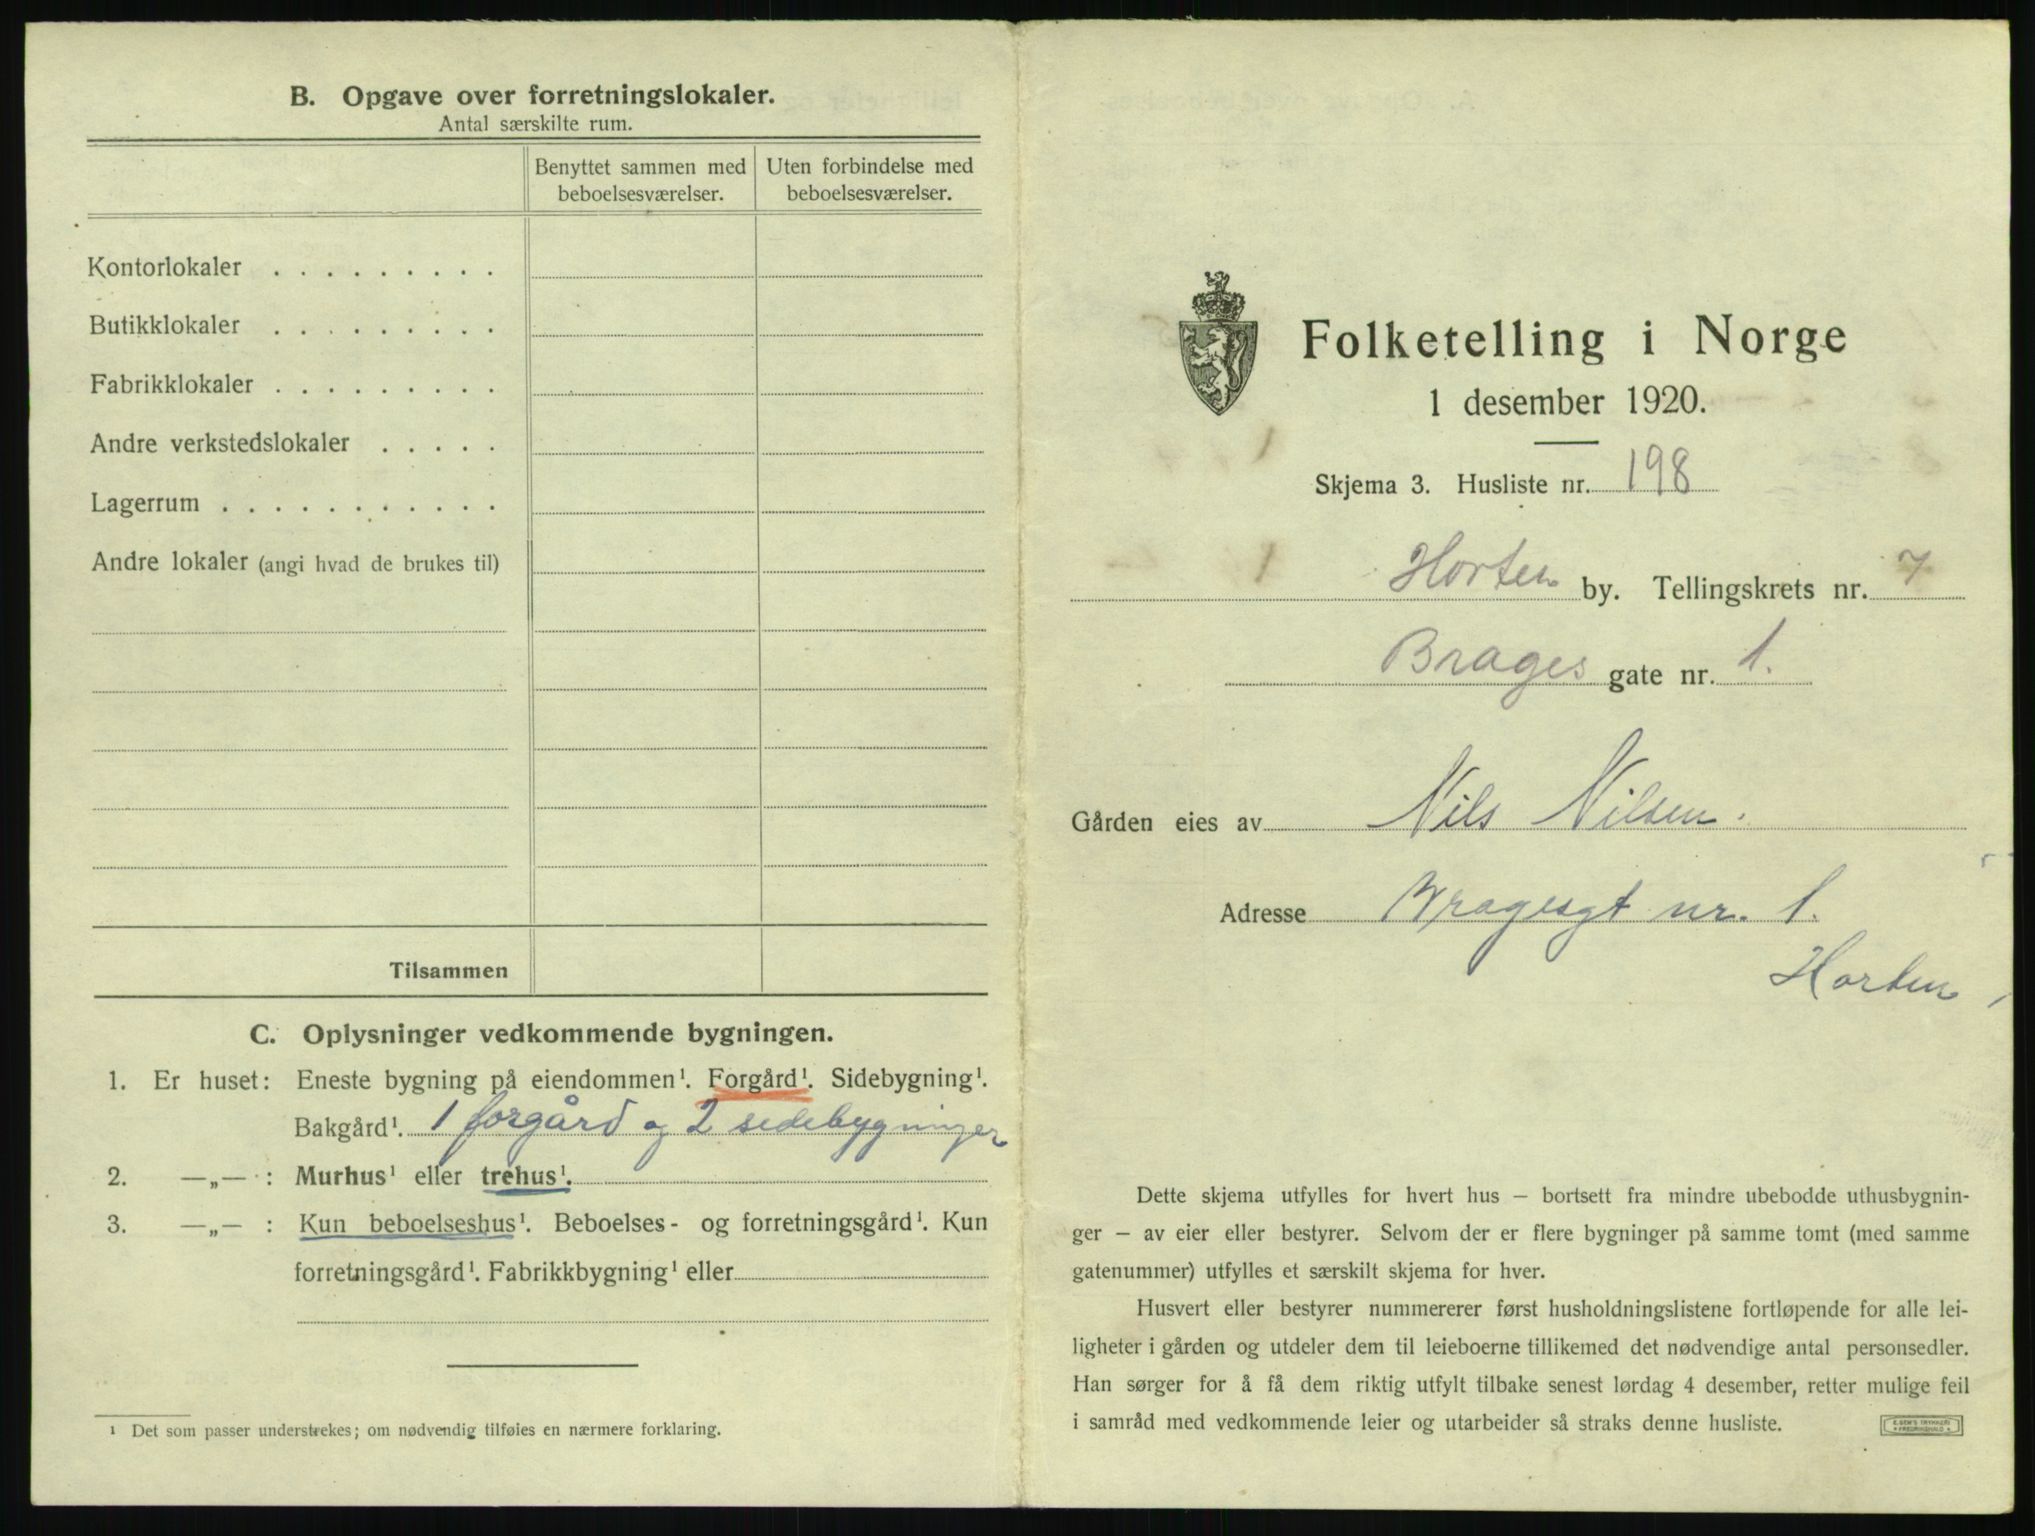 B. Opgave over forretningslokaler.
Antal særskilte rum.
Benyttet sammen med beboelsesværelser.
Uten forbindelse med beboelsesværelser.
Kontorlokaler . . . . . . . . .
Butikklokaler . . . . . . . . .
Fabrikklokaler . . . . . . . . .
Andre verkstedslokaler . . . . .
Lagerrum . . . . . . . . . . .
Andre lokaler (angi hvad de brukes til)
Tilsammen
C. Oplysninger vedkommende bygningen.
1. Er huset: Eneste bygning på eiendommen¹. Forgård¹. Sidebygning¹.
Bakgård¹. 1 forgård og 2 sidebygninger
2. —„— : Murhus¹ eller trehus¹.
3. —„— : Kun beboelseshus¹. Beboelses- og forretningsgård¹. Kun
forretningsgård¹. Fabrikkbygning¹ eller
¹ Det som passer understrekes; om nødvendig tilføies en nærmere forklaring.
Folketelling i Norge
1 desember 1920.
Skjema 3. Husliste nr. 198
Horten by. Tellingskrets nr. 7
Brages gate nr. 1.
Gården eies av Nils Nilsen.
Adresse Bragesgt nr. 1.
Horten
Dette skjema utfylles for hvert hus – bortsett fra mindre ubebodde uthusbygnin-
ger – av eier eller bestyrer. Selvom der er flere bygninger på samme tomt (med samme
gatenummer) utfylles et særskilt skjema for hver.
Husvert eller bestyrer nummererer først husholdningslistene fortløpende for alle lei-
ligheter i gården og utdeler dem til leieboerne tillikemed det nødvendige antal personsedler.
Han sørger for å få dem riktig utfylt tilbake senest lørdag 4 desember, retter mulige feil
i samråd med vedkommende leier og utarbeider så straks denne husliste.